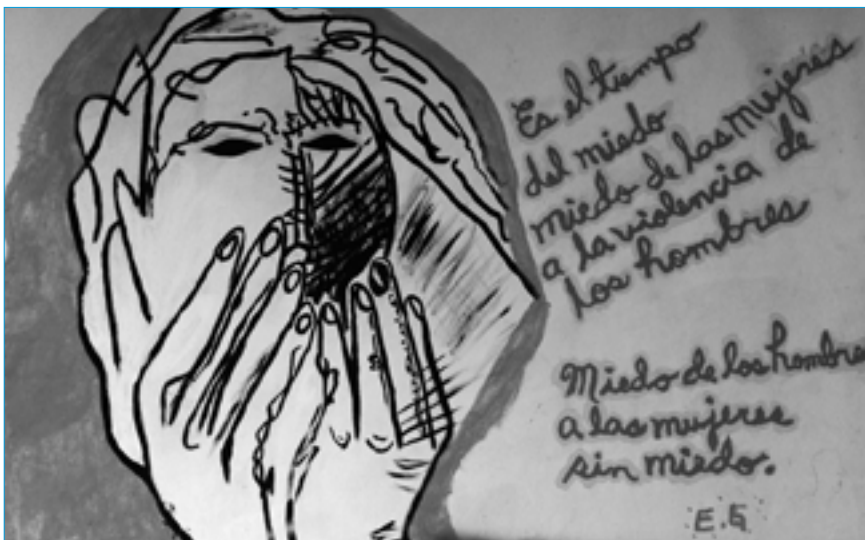 Es el tiempo
del miedo
miedo de las mujeres
a la violencia de
los hombres
Miedo de los hombres
a las mujeres
sin miedo.
E.G